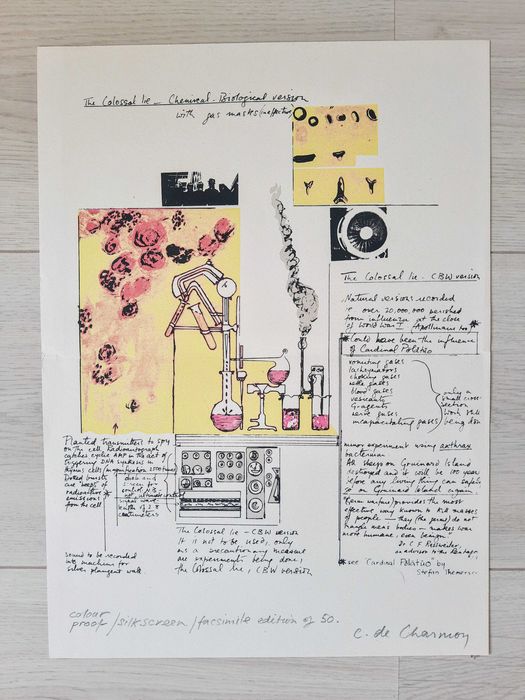 The Colossal lie - Chemical - Biological version
with gas masks (ineffective)
The Colossal lie - CBW version
Natural versions recorded
over 20,000,000 perished
from influenza at the close
of World War I. Apollinaire too
Could have been the influence
of Cardinal Pölätüo
vomiting gases
lachrymators
choking gases
blood gases
vesicants
G-agents
nerve gases
incapacitating gases
only a
small cross-
section
work still
being done
minor experiment using anthrax
bacterium
All sheep on Gruinard Island
destroyed and it will be 100 years
before any living thing can safely
be on Gruinard Island again.
Germ warfare provides the most
effective way known to kill masses
of people - they (the germs) do not
change mens bodies - makes war
more humane, even benign"
an advisor to the Pentagon
*see 'Cardinal Pölätüo' by
Stefan Themerson
Planted Transmitters to spy
on the cell. Radioautograph
catches cyclic AMP in the act of
triggering DNA synthesis in
thymus cells (magnification 2500 times)
Dotted bursts
are beeps of
radioactive
emissions
from the cell
sound to be recorded
via machine for
silver plangent wall
The Colossal lie - CBW version
It is not to be used, only
as a precautionary measure
are experiments being done,
the Colossal lie, CBW version
colour
proof/silkscreen/facsimile edition of 50.
C. de Charmoy